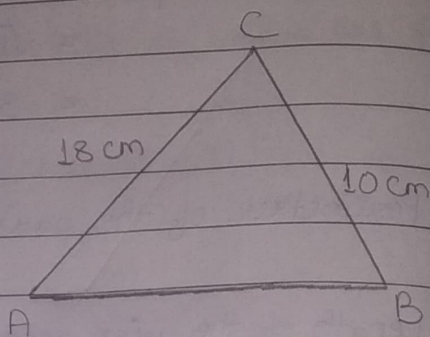 C
18 cm
10 cm
A
B